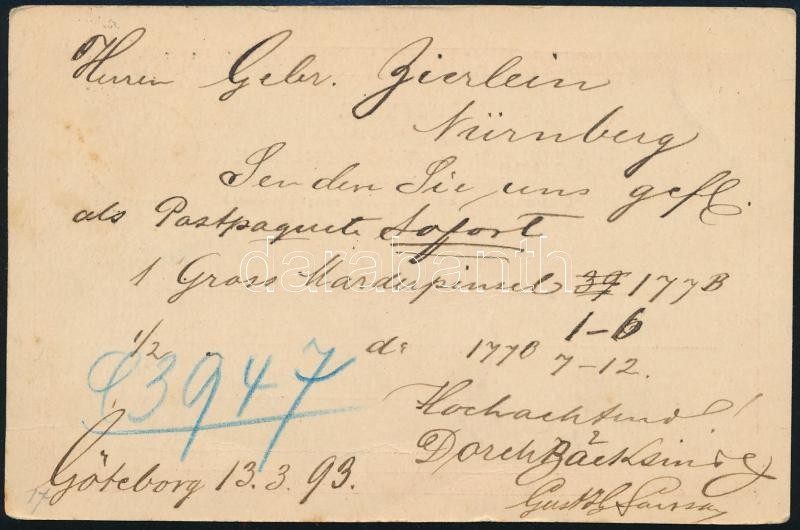 Herren Gebr. Zierlein
Nürnberg
Senden Sie uns gefl.
als Postpaquete sofort
1 Gross Marderpinsel 39 177B
1-6
1/2 " do 177B 7-12.
93947
Hochachtend
Dorch Bäcksin
Göteborg 13.3.93.
17
darabanth